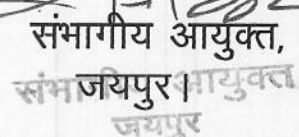 संभागीय आयुक्त,
जयपुर।
संभागीय आयुक्त
जयपुर